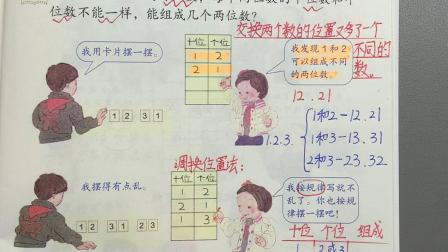 位数不能一样，能组成几个两位数？
交换两个数的位置又多了一个
不同的
数。
我用卡片摆一摆。
十位 个位
1 2
2 1
我发现 1 和 2
可以组成不同
的两位数。
12.21
1 2 3 1
1.2.3.
1和2-12.21
1和3-13.31
2和3-23.32
调换位置法：
我摆得有点乱。
十位 个位
1 2
2 1
1 3
我按规律写就不
乱了。你也按规
律摆一摆吧！
12 31 21 23
十位 个位 组成
1 2或3